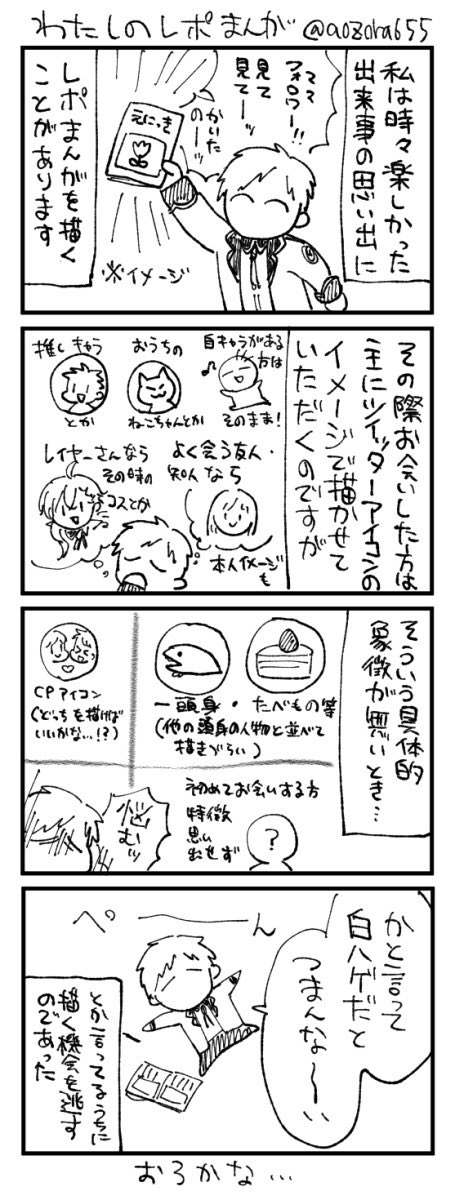 わたしのレポまんが @aozora655
私は時々楽しかった
出来事の思い出に
ママ
フォロワー!!
見て
見てーッ
かいた
のーッ
えにっき
※イメージ
レポまんがを描く
ことがあります
その際お会いした方は
主にツイッターアイコンの
イメージで描かせて
いただくのですが
推しキャラ
とか
おうちの
ねこちゃんとか
自キャラがある
方は
そのまま!
レイヤーさんなら
その時の
コスとか
よく会う友人・
知人なら
本人イメージ
も
そういう具体的
象徴が無いとき…
CPアイコン
(どっちを描けば
いいかな…!?)
一頭身・たべもの等
(他の頭身の人物と並べて
描きづらい)
初めてお会いする方
特徴
思い
出せず
?
悩むッ
かと言って
白ハゲだと
つまんな〜い
ぺーーん
とか言ってるうちに
描く機会を逃す
のであった
おろかな…